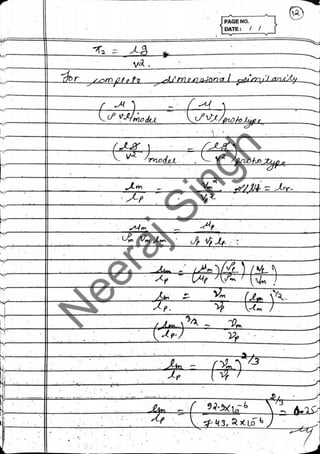 12
PAGE NO.
DATE: / /
π₂ = lg / v².
for complete dimensional similarity
(μ / ρvl)model = (μ / ρvl)prototype
(lg / v²)model = (lg / v²)prototype
lm / lp = Vm² / Vp² = lr.
μm / ρm Vm lm = μp / ρp Vp lp :
lm / lp = (μm / μp) (ρp / ρm) (Vp / Vm)
lm / lp = νm / νp (lp / lm)^1/2
(lm / lp)^3/2 = νm / νp
lm / lp = (νm / νp)^2/3
lm / lp = (92.9×10^-6 / 743.2×10^-6)^2/3 = 0.25
Neeraj Singh